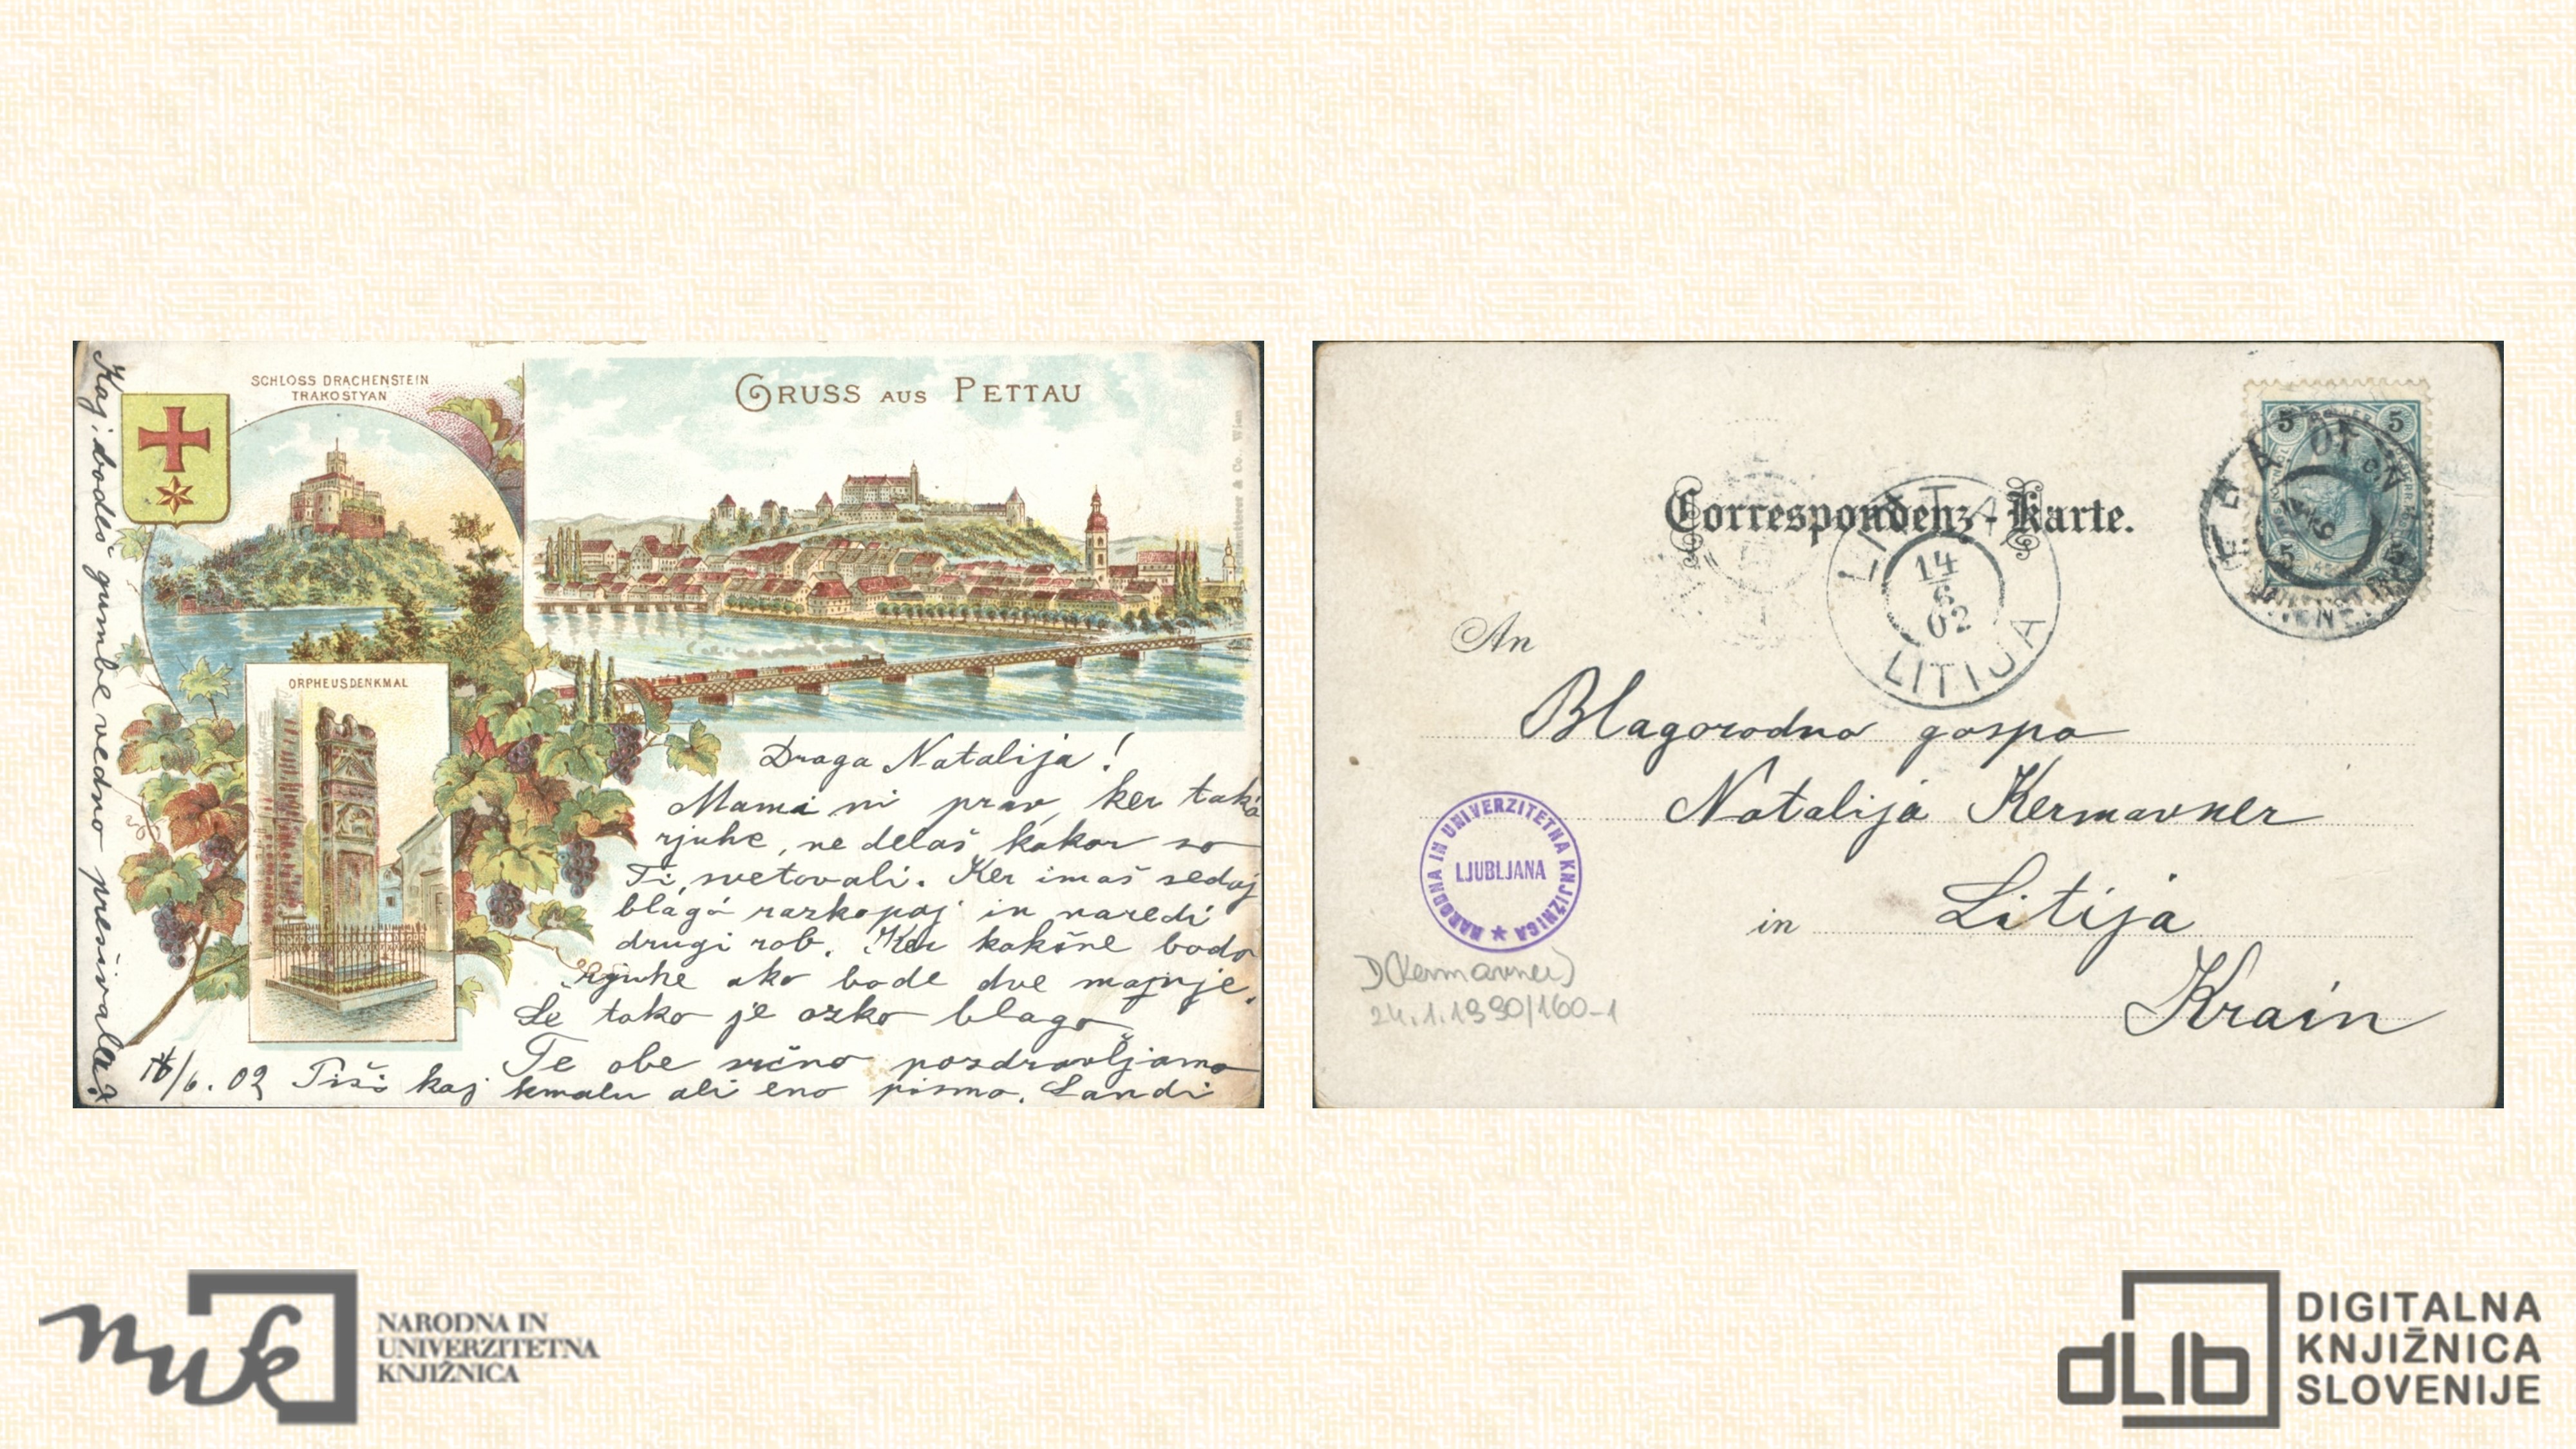 SCHLOSS DRACHENSTEIN
TRAKOSTYAN
GRUSS AUS PETTAU
ORPHEUSDENKMAL
Draga Natalija!
Mama ni prav, ker take
rjuhe, ne delaš kakor so
Ti svetovali. Ker imaš sedaj
blago razkopaj in naredi
drugi rob. Ker kakšne bodo
rjuhe ako bode dve manje.
Še tako je ozko blago
Te obe srčno pozdravljamo
/6. 02 Piši kaj kmalu ali eno pismo. Landi
Kaj: bodeš gumbe vedno prešivala?
& Co. Wien
Correspondenz-Karte.
5 5
5 5
14
6
02
LITIJA
An
Blagorodna gospa
Natalija Kermavner
in Litija
Krain
NARODNA IN UNIVERZITETNA KNJIŽNICA
LJUBLJANA
D(Kermavner)
24.1.1990/160-1
nuk
NARODNA IN
UNIVERZITETNA
KNJIŽNICA
dLib
DIGITALNA
KNJIŽNICA
SLOVENIJE